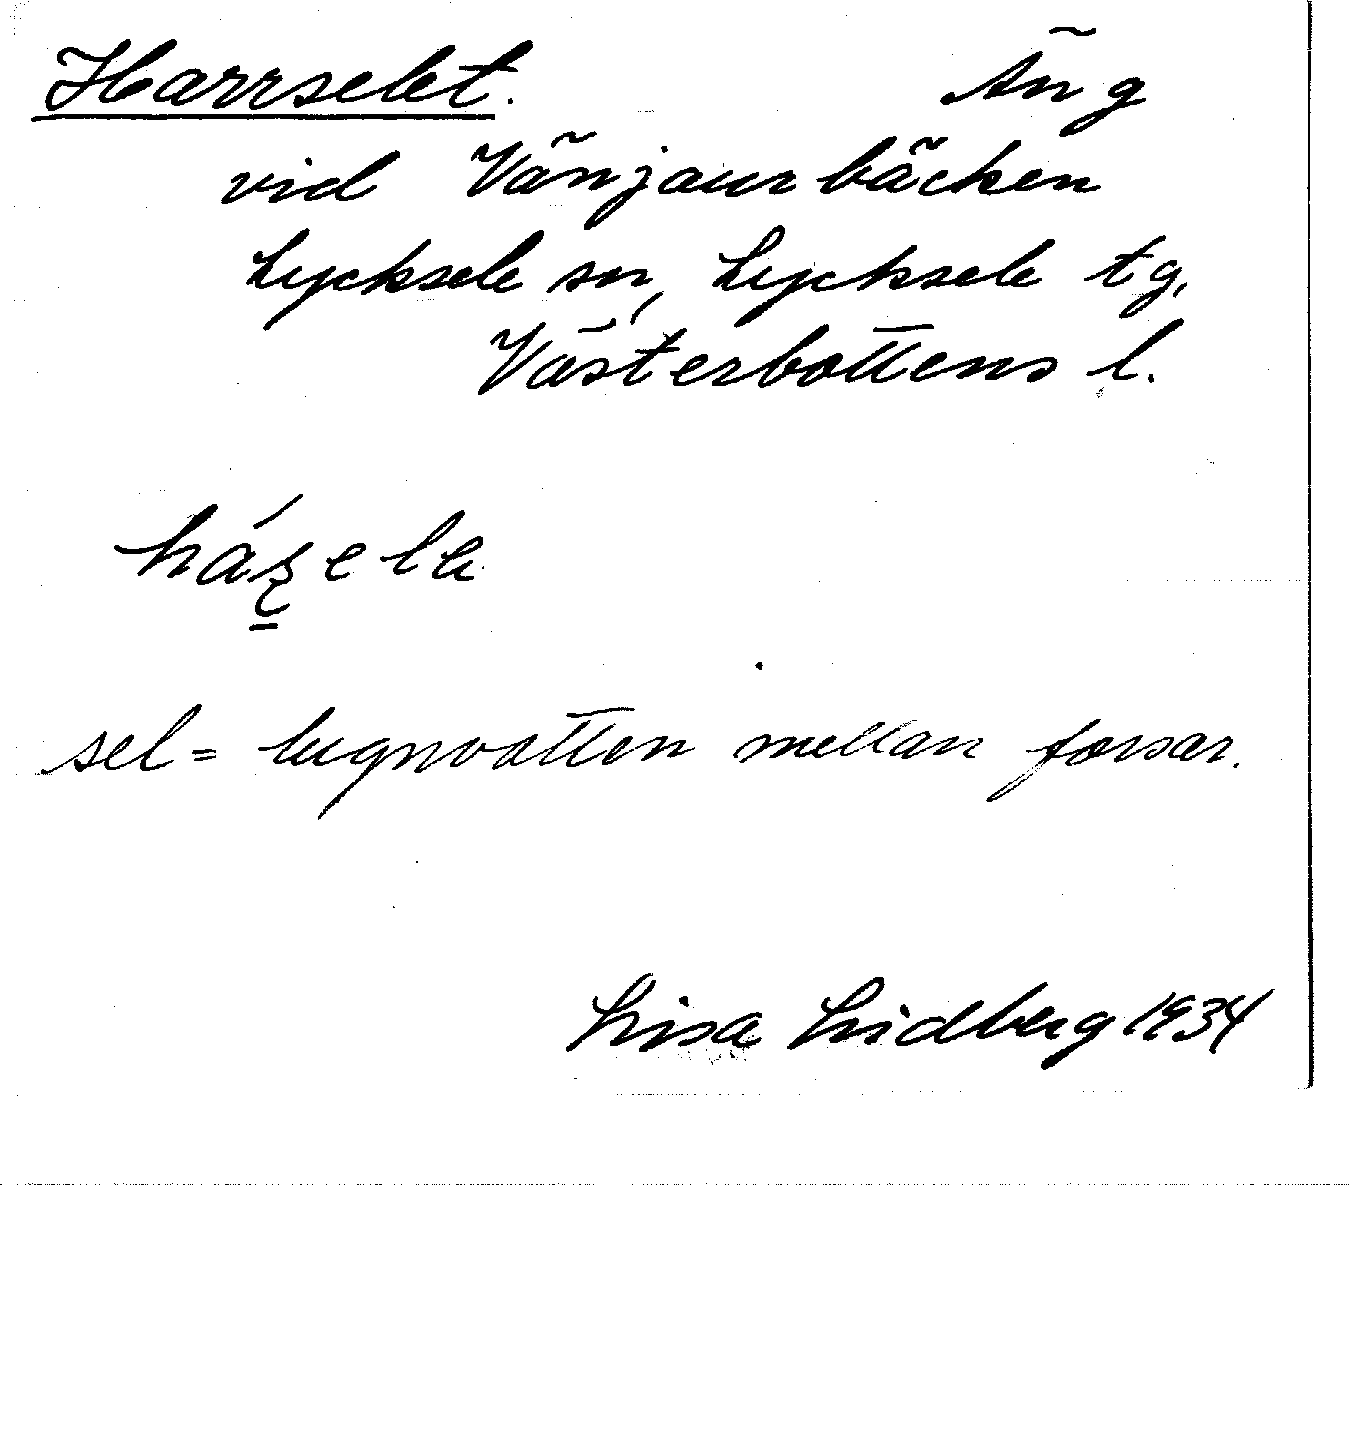 Harrselet. Äng
vid Vänjaurbäcken
Lycksele sn, Lycksele tg,
Västerbottens l.
sel = lugnvatten mellan forsar.
Lisa Lidberg 1934